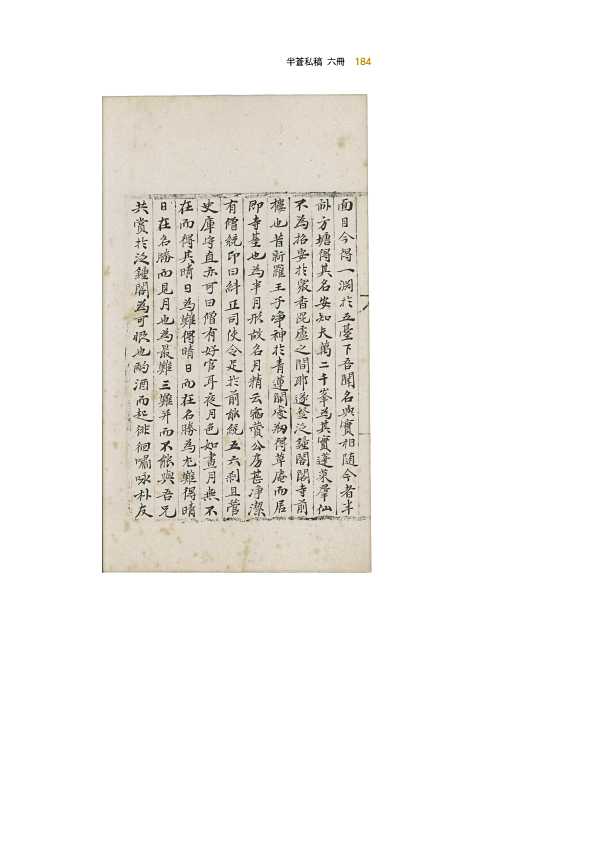 半蒼私稿 六冊 184
面目今得一洞於五臺下吾聞名與實相隨今者半
畝方塘得其名安知夫萬二千峯為其實蓬萊羣仙
不為招要於衆香毘盧之間耶遂登泛鍾閣閣寺前
樓也昔新羅王子淨神於青蓮開處刱得草庵而居
即寺基也為半月形故名月精云宿賞公房甚淨潔
有僧統印曰糾正司使令足於前能統五六刹且管
史庫守直亦可曰僧有好官耳夜月色如晝月無不
在而得其晴日為難得晴日而在名勝為尤難得晴
日在名勝而見月也為最難三難并而不能與吾兄
共賞於泛鍾閣為可恨也酌酒而起徘徊嘯咏朴友